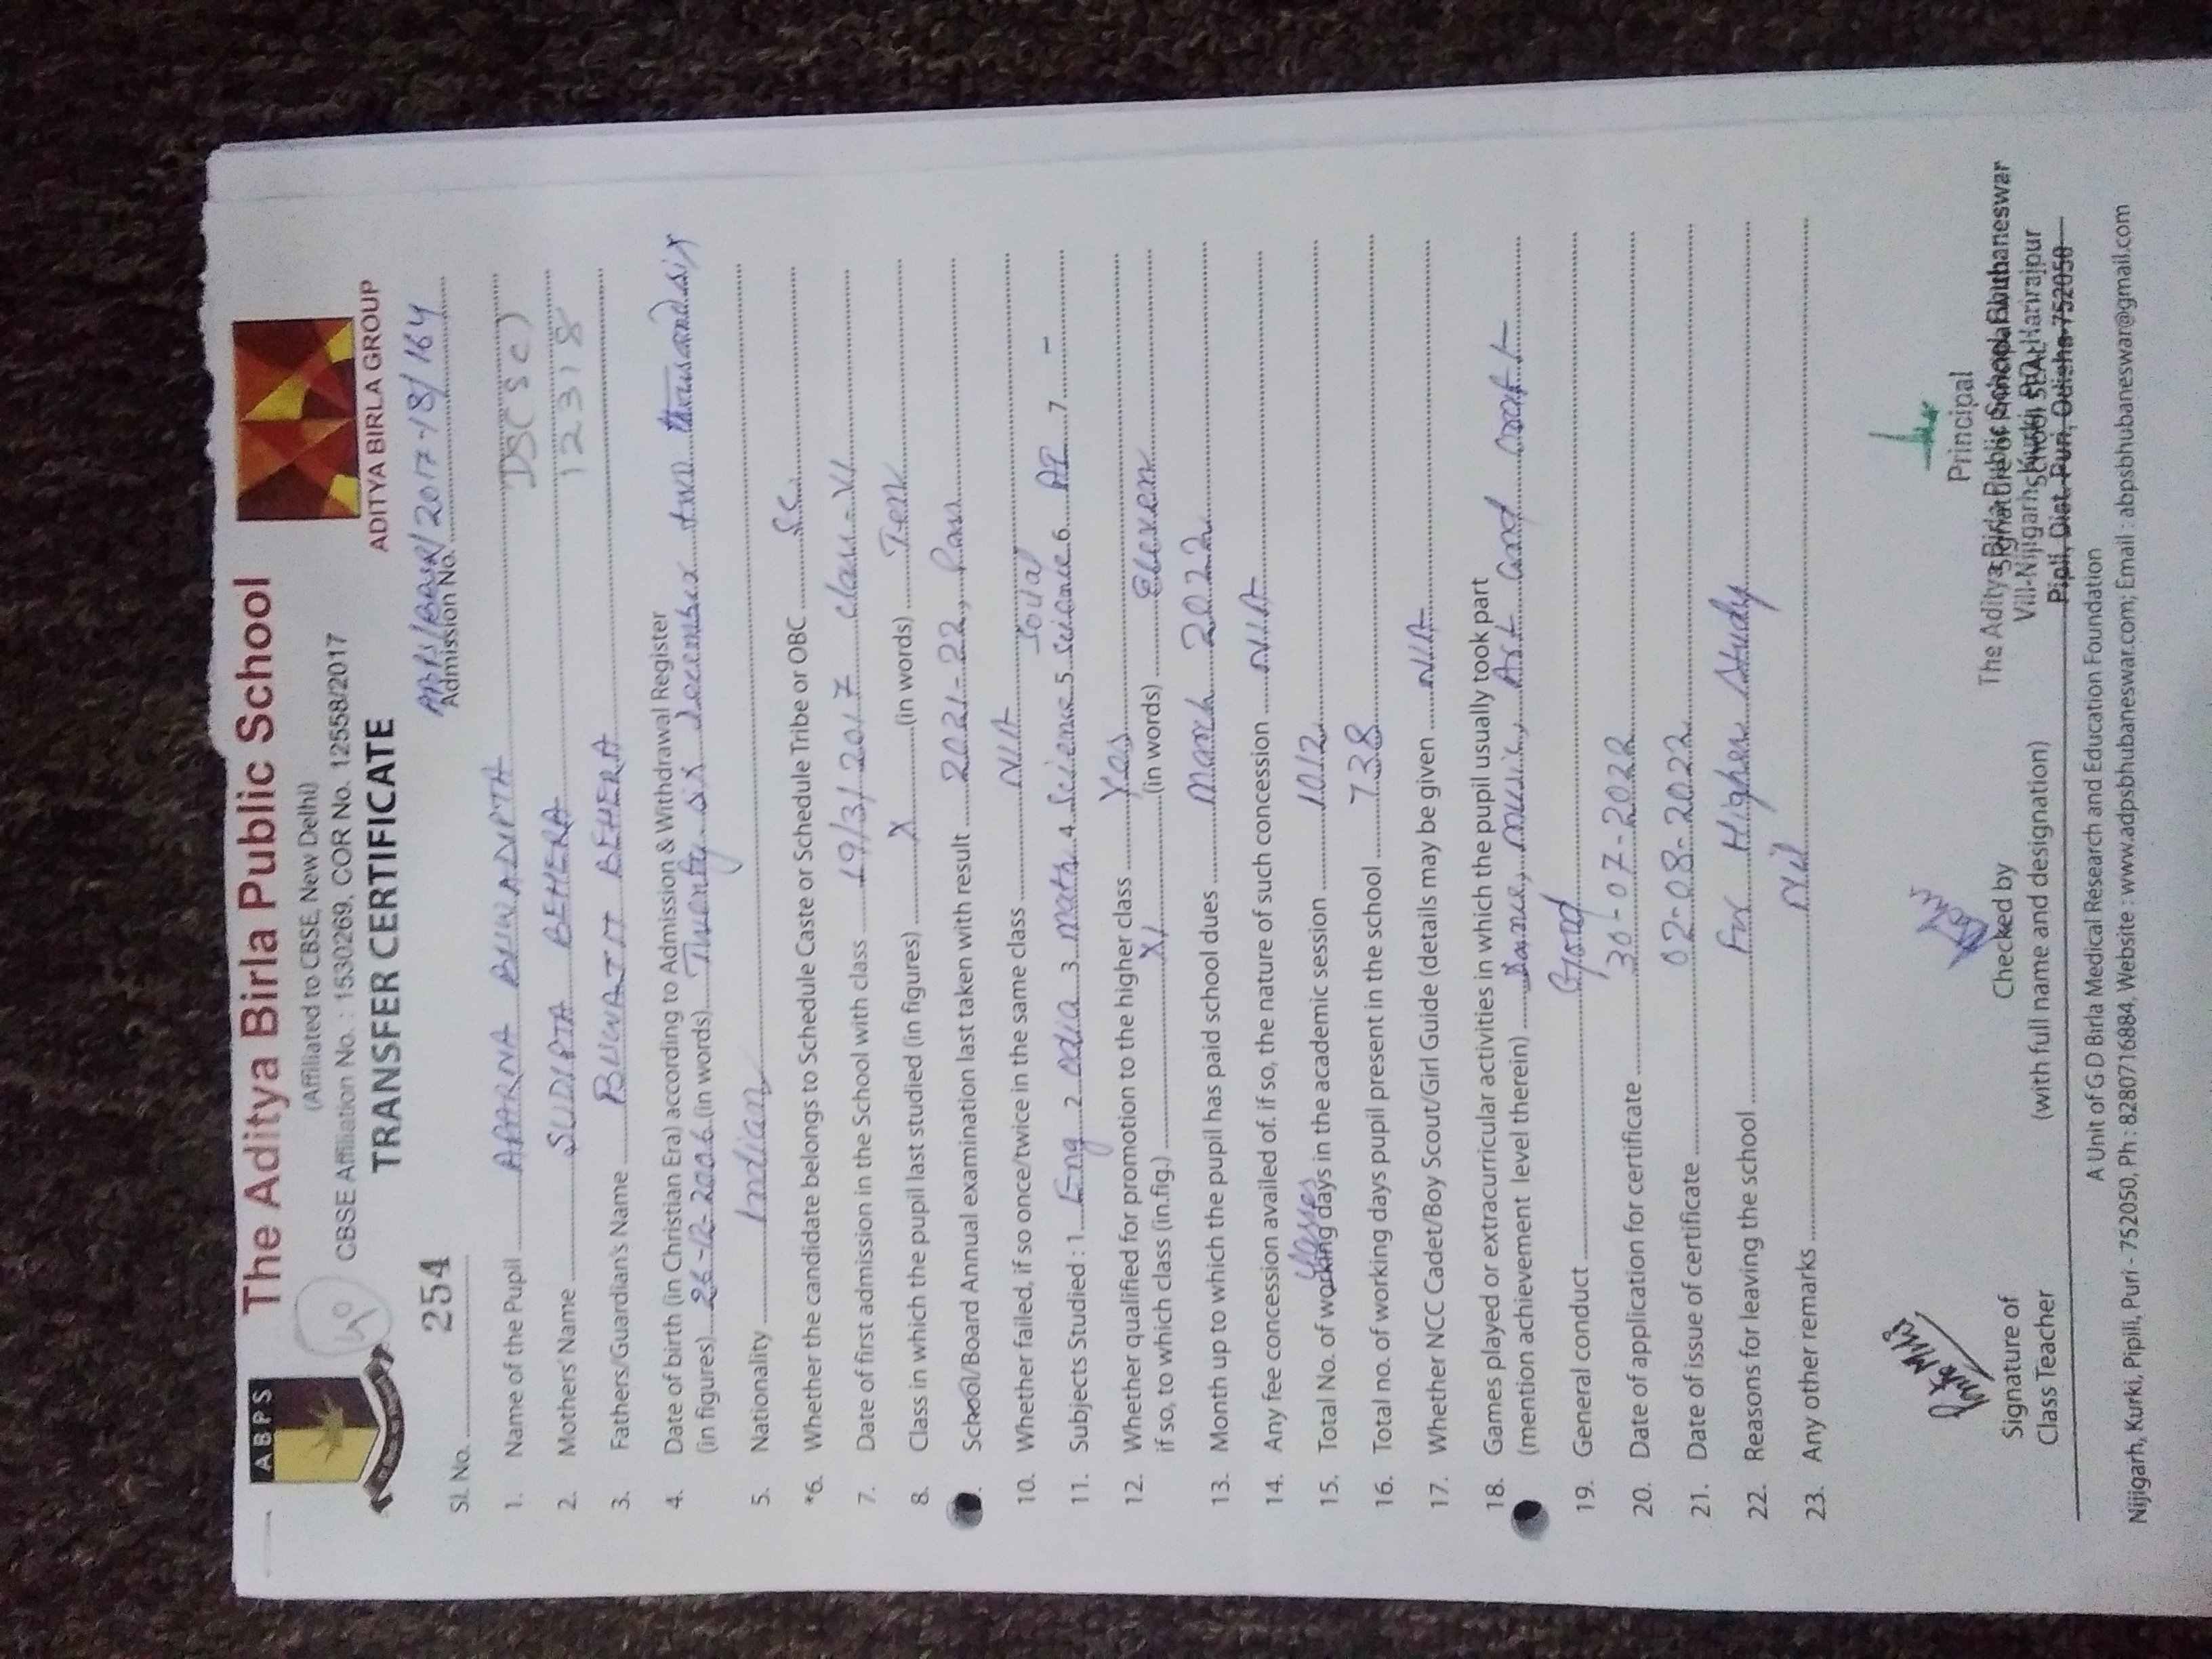 ABPS
The Aditya Birla Public School
ADITYA BIRLA GROUP
(Affiliated to CBSE, New Delhi)
CBSE Affiliation No. : 1530269, COR No. 12558/2017
TRANSFER CERTIFICATE
Sl. No. 254 Admission No. /2017-18/164
1. Name of the Pupil APARNA
DB(SC)
2. Mothers' Name SUDIPTA BEHERA
12318
3. Fathers/Guardian's Name BEHERA
4. Date of birth (in Christian Era) according to Admission & Withdrawal Register
(in figures) 26-12-2006 (in words) Twenty six december two thousand six
5. Nationality Indian
*6. Whether the candidate belongs to Schedule Caste or Schedule Tribe or OBC SC
7. Date of first admission in the School with class 19/3/2017 class-VI
8. Class in which the pupil last studied (in figures) X (in words) Ten
School/Board Annual examination last taken with result 2021-22, Pass
10. Whether failed, if so once/twice in the same class N/A
11. Subjects Studied : 1 Eng 2 odia 3 math 4 Science 5 Social Science 6 7 -
12. Whether qualified for promotion to the higher class Yes
if so, to which class (in.fig.) XI (in words) Eleven
13. Month up to which the pupil has paid school dues March 2022
14. Any fee concession availed of. if so, the nature of such concession N/A
15. Total No. of working days in the academic session 1012
16. Total no. of working days pupil present in the school 738
17. Whether NCC Cadet/Boy Scout/Girl Guide (details may be given N/A
18. Games played or extracurricular activities in which the pupil usually took part
(mention achievement level therein) Dance, music, Art and craft
19. General conduct Good
20. Date of application for certificate 30-07-2022
21. Date of issue of certificate 02-08-2022
22. Reasons for leaving the school For Higher Study
23. Any other remarks Nil
Signature of
Class Teacher
Checked by
(with full name and designation)
Principal
The Aditya Birla Public School, Bhubaneswar
Signature of Principal
Vill-Nijigarh Kurki, PO. Harirajpur
School SEAL
Pipli, Dist. Puri, Odisha-752050
A Unit of G.D Birla Medical Research and Education Foundation
Nijigarh, Kurki, Pipili, Puri - 752050, Ph : 8280716884, Website : www.adpsbhubaneswar.com; Email : abpsbhubaneswar@gmail.com